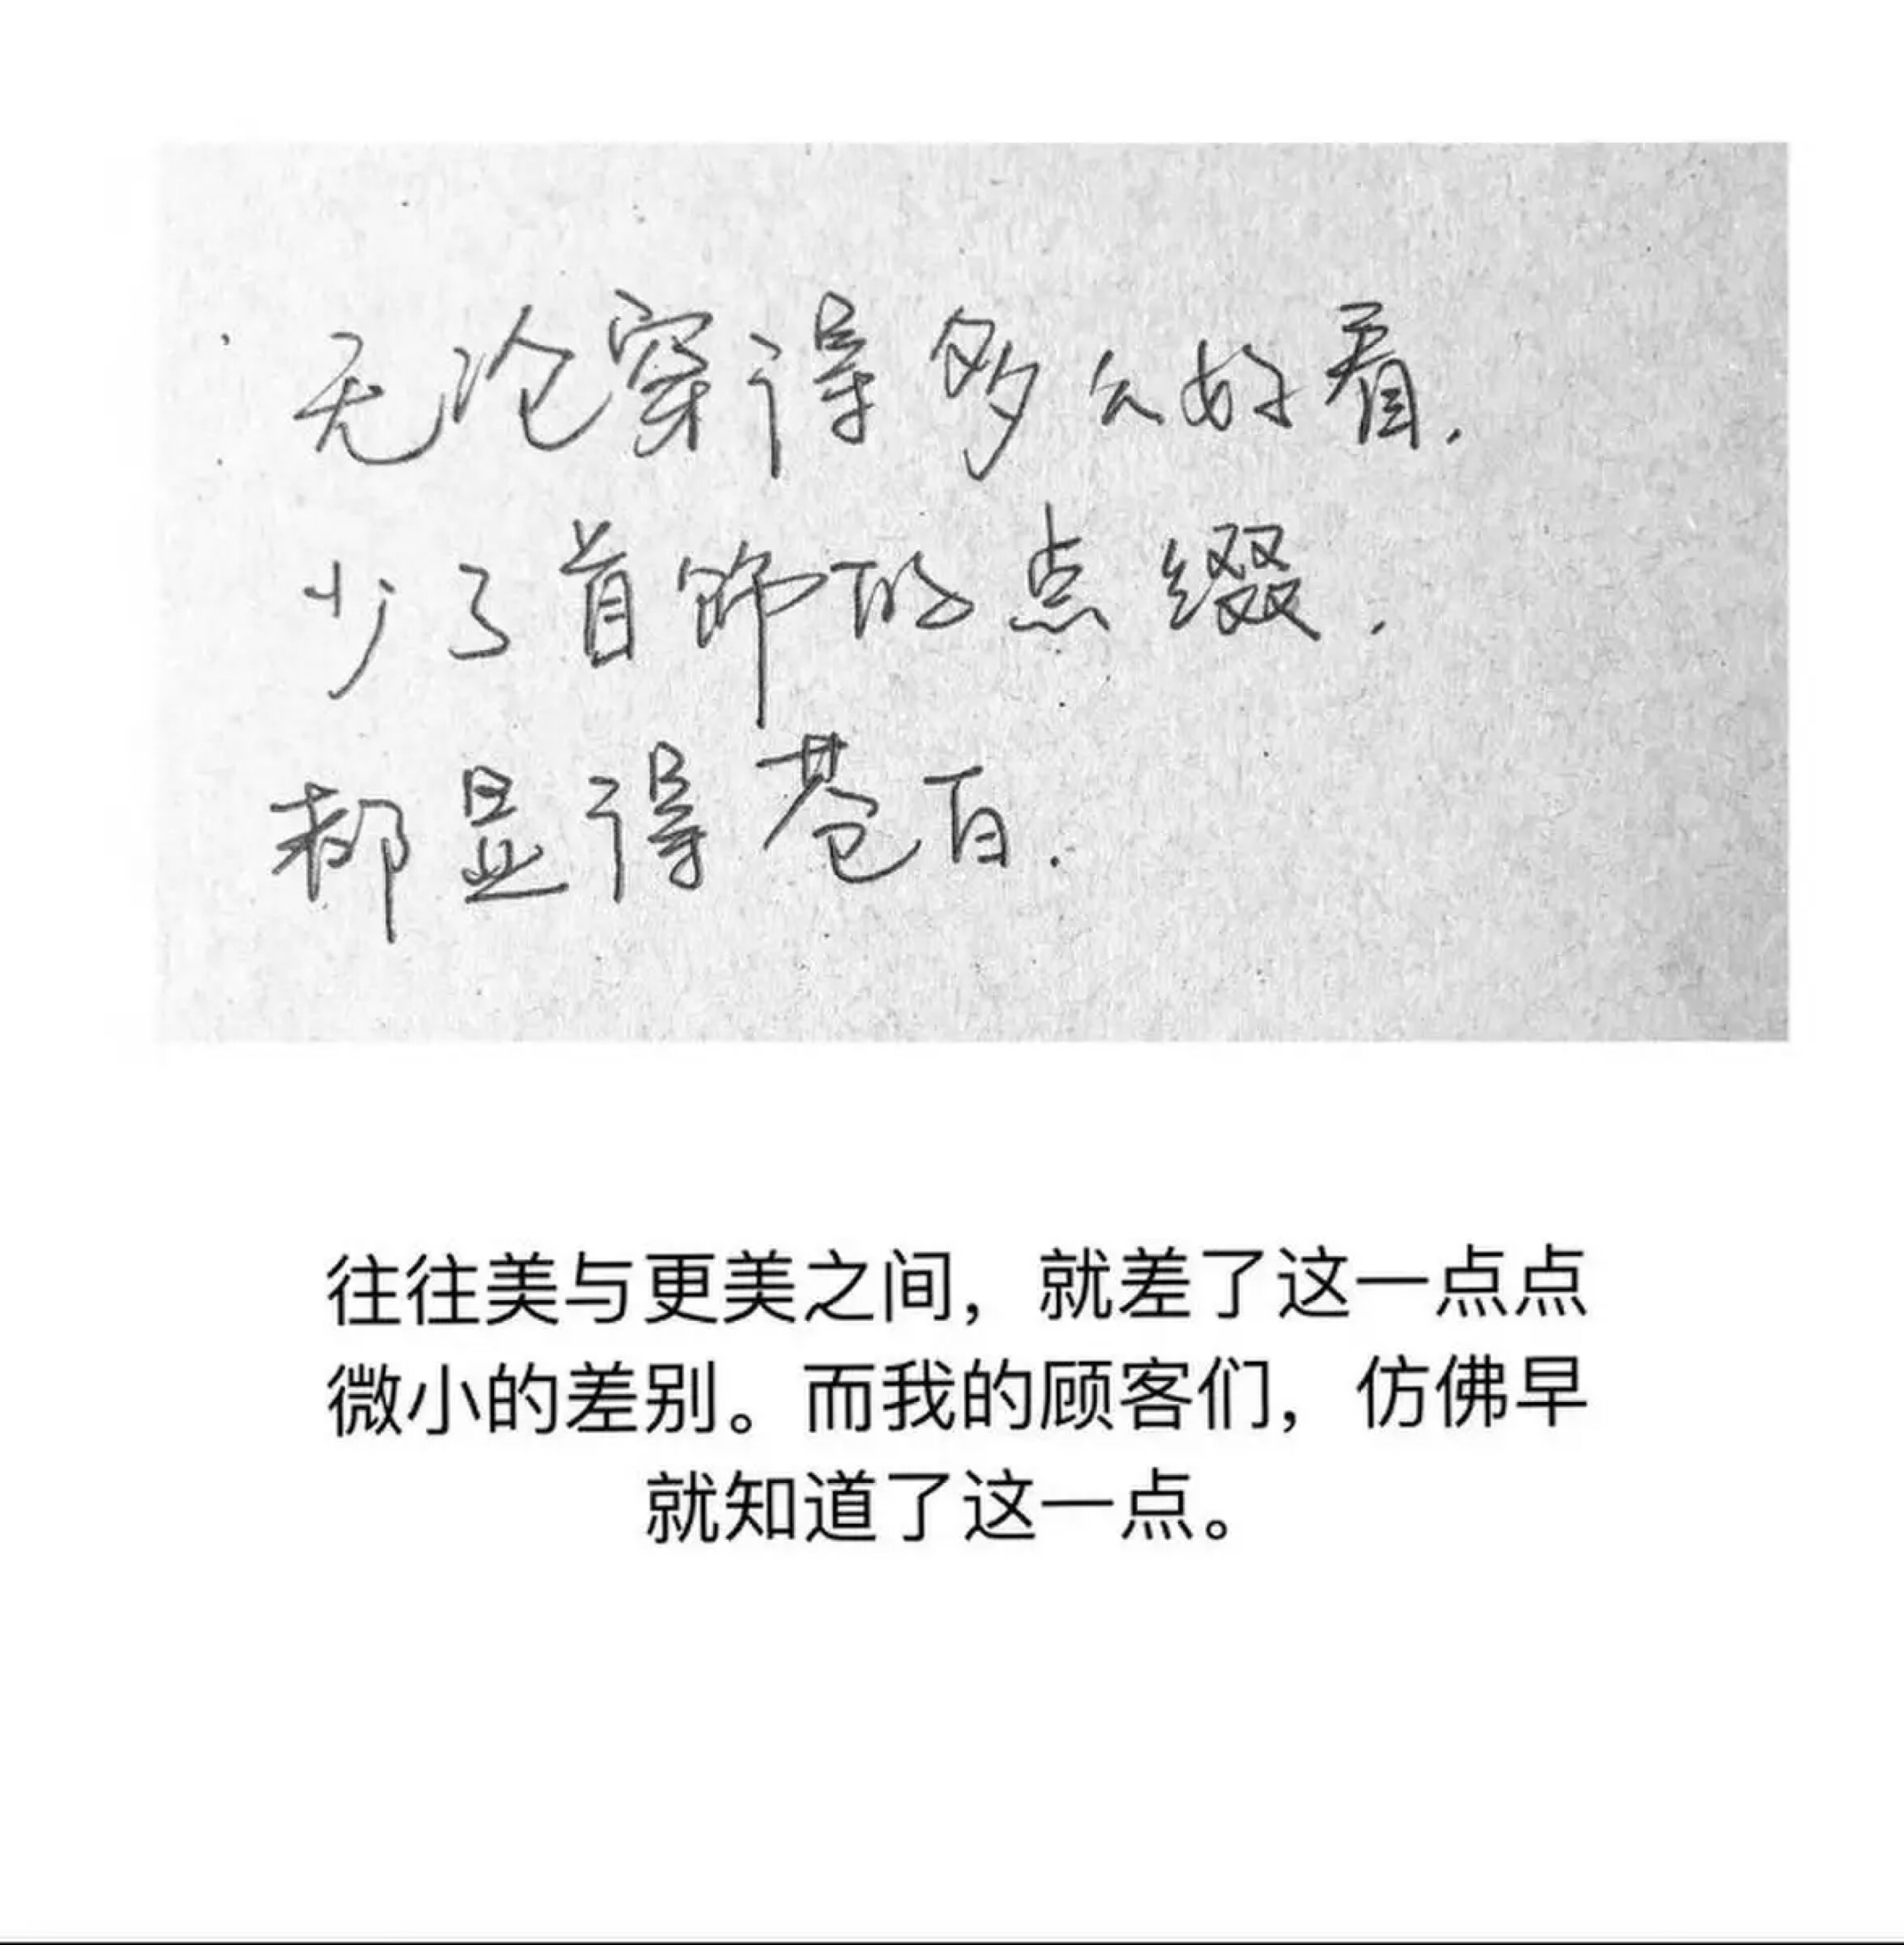 无论穿得多么好看.
少了首饰的点缀.
都显得苍白.
往往美与更美之间，就差了这一点点
微小的差别。而我的顾客们，仿佛早
就知道了这一点。